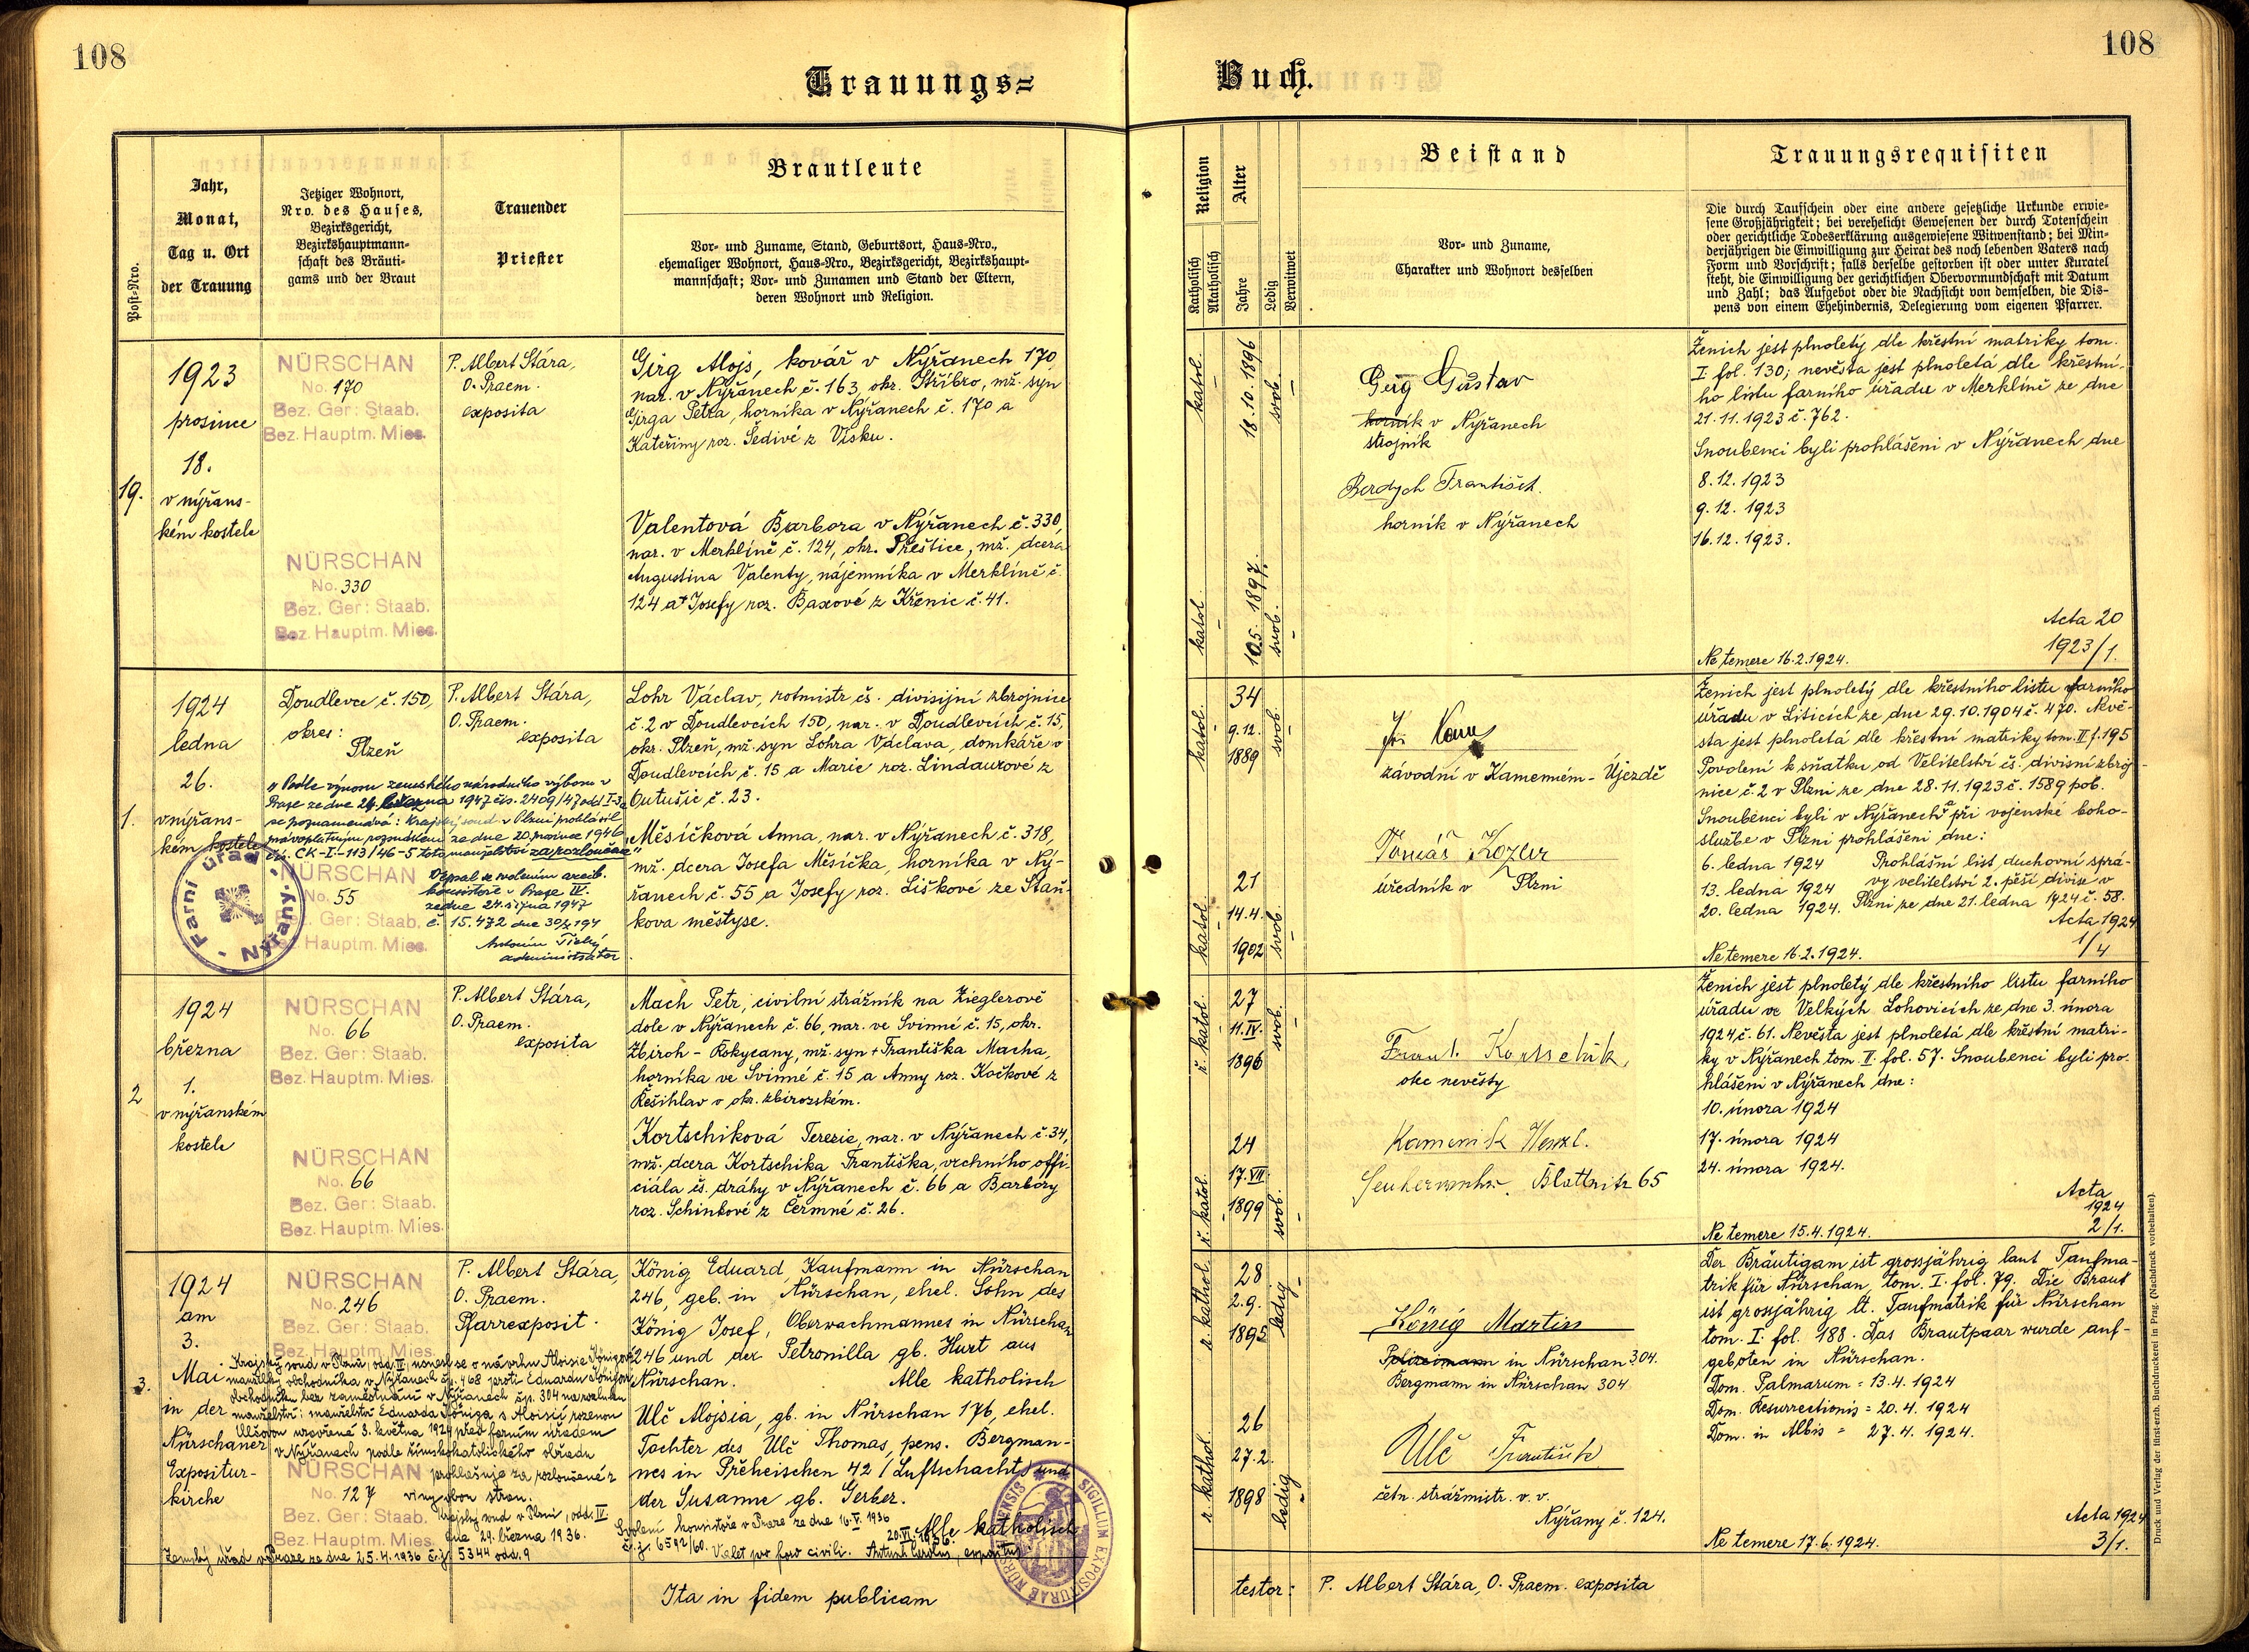 108
Trauungs=
Post=Nro.
Jahr,
Monat,
Tag u. Ort
der Trauung
Jetziger Wohnort,
Nro. des Hauses,
Bezirksgericht,
Bezirkshauptmann=
schaft des Bräuti=
gams und der Braut
Trauender
Priester
Brautleute
Vor= und Zuname, Stand, Geburtsort, Haus=Nro.,
ehemaliger Wohnort, Haus=Nro., Bezirksgericht, Bezirkshaupt=
mannschaft; Vor= und Zunamen und Stand der Eltern,
deren Wohnort und Religion.
19.
1923
prosince
18.
v nýřans-
kém kostele
NÜRSCHAN
No. 170
Bez. Ger: Staab.
Bez. Hauptm. Mies.
NÜRSCHAN
No. 330
Bez. Ger: Staab.
Bez. Hauptm. Mies.
P. Albert Stára,
O. Praem.
exposita
Girg Alojs, kovář v Nýřanech 170,
nar. v Nýřanech č. 163, okr. Stříbro, mž. syn
Girga Petra, horníka v Nýřanech č. 170 a
Kateřiny roz. Šedivé z Vísku.
Valentová Barbora v Nýřanech č. 330,
nar. v Merklíně č. 124, okr. Přeštice, mž. dcera
Augustina Valenty, nájemníka v Merklíně č.
124 a + Josefy roz. Baxové z Křenic č. 41.
1.
1924
ledna
26.
v nýřans-
kém kostele
Doudlevce č. 150,
okres:
Plzeň
"Podle výnosu zemského národního výboru v
Praze ze dne 24. března 1947 čís. 2409/47 odd I-3a
se poznamenává: Krajský soud v Plzni prohlásil
pravoplatným rozsudkem ze dne 20. prosince 1946
čís. CK-I-113/46-5 toto manželství za rozloučené"
NÜRSCHAN
No. 55
Bez. Ger: Staab.
Bez. Hauptm. Mies.
Farní úřad
Nýřany
Vepsal se svolením arcib.
konsistoře v Praze IV.
ze dne 24. října 1947
č. 15.472 dne
Antonín Tichý
administrátor
P. Albert Stára,
O. Praem.
exposita
Lohr Václav, rotmistr čs. divisijní zbrojnice
č. 2 v Doudlevcích 150, nar. v Doudlevcích č. 15,
okr. Plzeň, mž. syn Lohra Václava, domkáře v
Doudlevcích č. 15 a Marie roz. Lindaurové z
Outušic č. 23.
Měsíčková Anna, nar. v Nýřanech č. 318,
mž. dcera Josefa Měsíčka, horníka v Ný-
řanech č. 55 a Josefy roz. Liškové ze Staň-
kova městyse.
2
1924
března
1.
v nýřanském
kostele
NÜRSCHAN
No. 66
Bez. Ger: Staab.
Bez. Hauptm. Mies.
NÜRSCHAN
No. 66
Bez. Ger: Staab.
Bez. Hauptm. Mies.
P. Albert Stára,
O. Praem.
exposita
Mach Petr, civilní strážník na Zieglerově
dole v Nýřanech č. 66, nar. ve Svinné č. 15, okr.
Zbiroh - Rokycany, mž. syn + Františka Macha,
horníka ve Svinné č. 15 a Anny roz. Kočkové z
Řešihlav v okr. zbirozském.
Kortschiková Terezie, nar. v Nýřanech č. 34,
mž. dcera Kortschika Františka, vrchního offi-
ciála čs. dráhy v Nýřanech č. 66 a Barbóry
roz. Schinkové z Čermné č. 26.
3.
1924
am
3.
Mai
in der
Nürschaner
Expositur-
kirche
NÜRSCHAN
No. 246
Bez. Ger: Staab.
Bez. Hauptm. Mies.
Krajský soud v Plzni, odd. IV, usnesl se o návrhu Aloisie Königové
manželky obchodníka v Nýřanech čp. 468 proti Eduardu Königovi
obchodníku bez zaměstnání v Nýřanech čp. 304 na rozluku
manželství: manželství Eduarda Königa s Aloisií rozenou
Ulčovou uzavřené 3. května 1924 před farním úřadem
v Nýřanech podle římskokatolického obřadu
prohlašuje za rozloučené z
viny obou stran.
Krajský soud v Plzni, odd. IV.
dne 29. března 1936.
Zemský úřad v Praze ze dne 25.4.1936 č.j. 5344 odd. 9
NÜRSCHAN
No. 127
Bez. Ger: Staab.
Bez. Hauptm. Mies.
P. Albert Stára,
O. Praem.
Pfarrexposit.
König Eduard, Kaufmann in Nürschan
246, geb. in Nürschan, ehel. Sohn des
König Josef, Oberwachmannes in Nürschan
246 und der Petronilla gb. Hurt aus
Nürschan. Alle katholisch
Ulč Alojsia, gb. in Nürschan 176, ehel.
Tochter des Ulč Thomas, pens. Bergman-
nes in Přeheischen 42 (Luftschacht) und
der Susanne gb. Gerber.
Alle katholisch
Svolení konsistoře v Praze ze dne 16.V.1936
č.j. 6592/60. Valet pro foro civili.
SIGILLUM EXPOSITURAE NÜRSCHANENSIS
Ita in fidem publicam
108
Buch.
Religion
Katholisch
Akatholisch
Alter
Jahre
Ledig
Verwitwet
Beistand
Vor= und Zuname,
Charakter und Wohnort desselben
Trauungsrequisiten
Die durch Taufschein oder eine andere gesetzliche Urkunde erwie=
sene Großjährigkeit; bei verehelicht Gewesenen der durch Totenschein
oder gerichtliche Todeserklärung ausgewiesene Witwenstand; bei Min=
derjährigen die Einwilligung zur Heirat des noch lebenden Vaters nach
Form und Vorschrift; falls derselbe gestorben ist oder unter Kuratel
steht, die Einwilligung der gerichtlichen Obervormundschaft mit Datum
und Zahl; das Aufgebot oder die Nachsicht von demselben, die Dis=
pens von einem Ehehindernis, Delegierung vom eigenen Pfarrer.
katol.
18.10.1896
svob.
katol.
10.5.1897.
svob.
Girg Gustav
horník v Nýřanech
strojník
Berdych František.
horník v Nýřanech
Ženich jest plnoletý dle křestní matriky tom.
I. fol. 130; nevěsta jest plnoletá dle křestní-
ho listu farního úřadu v Merklíně ze dne
21.11.1923 č. 762.
Snoubenci byli prohlášeni v Nýřanech dne
8.12.1923
9.12.1923
16.12.1923.
Acta 20
1923/1.
Ne temere 16.2.1924.
katol.
34
9.12.
1889
svob.
katol.
21
14.4.
1902
svob.
závodní v Kamenném-Újezdě
Tomáš Kozler
úředník v Plzni
Ženich jest plnoletý dle křestního listu farního
úřadu v Liticích ze dne 29.10.1904 č. 470. Nevě-
sta jest plnoletá dle křestní matriky tom. II f. 195
Povolení k sňatku od Velitelství čs. divisní zbroj-
nice č. 2 v Plzni ze dne 28.11.1923 č. 1589 pob.
Snoubenci byli v Nýřanech a při vojenské boho-
službe v Plzni prohlášeni dne:
6. ledna 1924 Prohlášní list duchovní sprá-
13. ledna 1924 vy velitelství 2. pěší divise v
20. ledna 1924. Plzni ze dne 21. ledna 1924 č. 58.
Acta 1924
1/4
Ne temere 16.2.1924.
ř. katol.
27
11.IV.
1896
svob.
ř. katol.
24
17.VII.
1899
svob.
Frant. Kortschik,
otec nevěsty
Kamenik Wenzl.
Blattnitz 65
Ženich jest plnoletý dle křestního listu farního
úřadu ve Velkých Lohovicích ze dne 3. února
1924 č. 61. Nevěsta jest plnoletá dle křestní matri-
ky v Nýřanech tom. II. fol. 57. Snoubenci byli pro-
hlášeni v Nýřanech dne:
10. února 1924
17. února 1924
24. února 1924.
Acta
1924
2/1.
Ne temere 15.4.1924.
r. kathol.
28
2.9.
1895
ledig
r. kathol.
26
27.2.
1898
ledig
König Martin
Polizeimann in Nürschan 304.
Bergmann in Nürschan 304
Ulč František
četn. strážmistr. v. v.
Nýřany č. 124.
Der Bräutigam ist grossjährig laut Taufma-
trik für Nürschan, tom. I. fol. 79. Die Braut
ist grossjährig lt. Taufmatrik für Nürschan
tom. I. fol. 188. Das Brautpaar wurde auf-
geboten in Nürschan.
Dom. Palmarum = 13.4.1924
Dom. Resurrectionis = 20.4.1924
Dom. in Albis = 27.4.1924.
Acta 1924
3/1.
Ne temere 17.6.1924.
testor: P. Albert Stára, O. Praem. exposita
Druck und Verlag der fürst-erzb. Buchdruckerei in Prag. (Nachdruck vorbehalten).